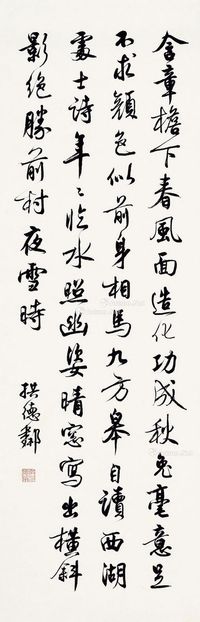 含章檐下春風面造化功成秋兔毫意足
不求顏色似前身相馬九方皋自讀西湖
處士詩年〻臨水照幽姿晴窗寫出橫斜
影絕勝前村夜雪時
拱德鄰